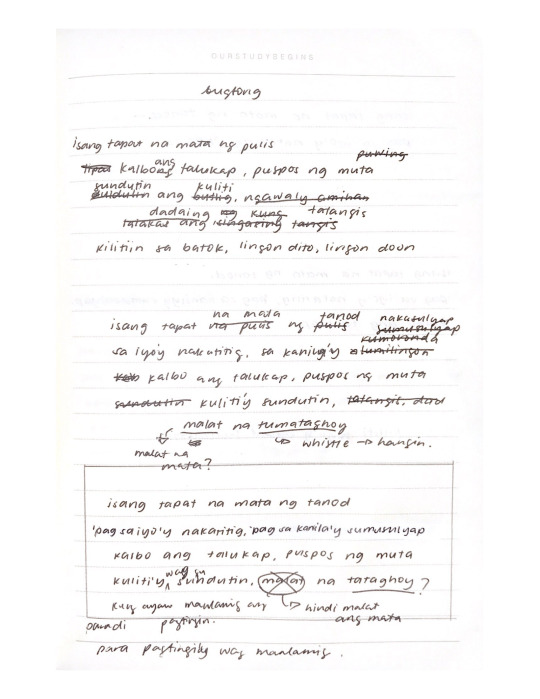 OURSTUDYBEGINS
bugtong
isang tapat na mata ng pulis
puwing
kalbo ang talukap, puspos ng muta
sundutin kuliti
ang butlig, ngawaly amihan
dadaing kung talangis
tatakas ang tangis
kilitiin sa batok, lingon dito, lingon doon
na mata tanod nakasulyap
isang tapat na pulis ng pulis sumusulyap
sa iyo'y nakatitig, sa kaniya'y lumilingon
kalbo ang talukap, puspos ng muta
sundutin kuliti'y sundutin,
malat na tumataghoy
↳ whistle → hangin.
malat na
mata?
isang tapat na mata ng tanod
'pag sa iyo'y nakatitig, 'pag sa kanila'y sumusulyap
kalbo ang talukap, puspos ng muta
wag
kuliti'y sundutin, malat na tataghoy?
kung ayaw manlamig ang ↳ hindi malat
pagtingin. ang mata
para pagtingi'y wag manlamig.